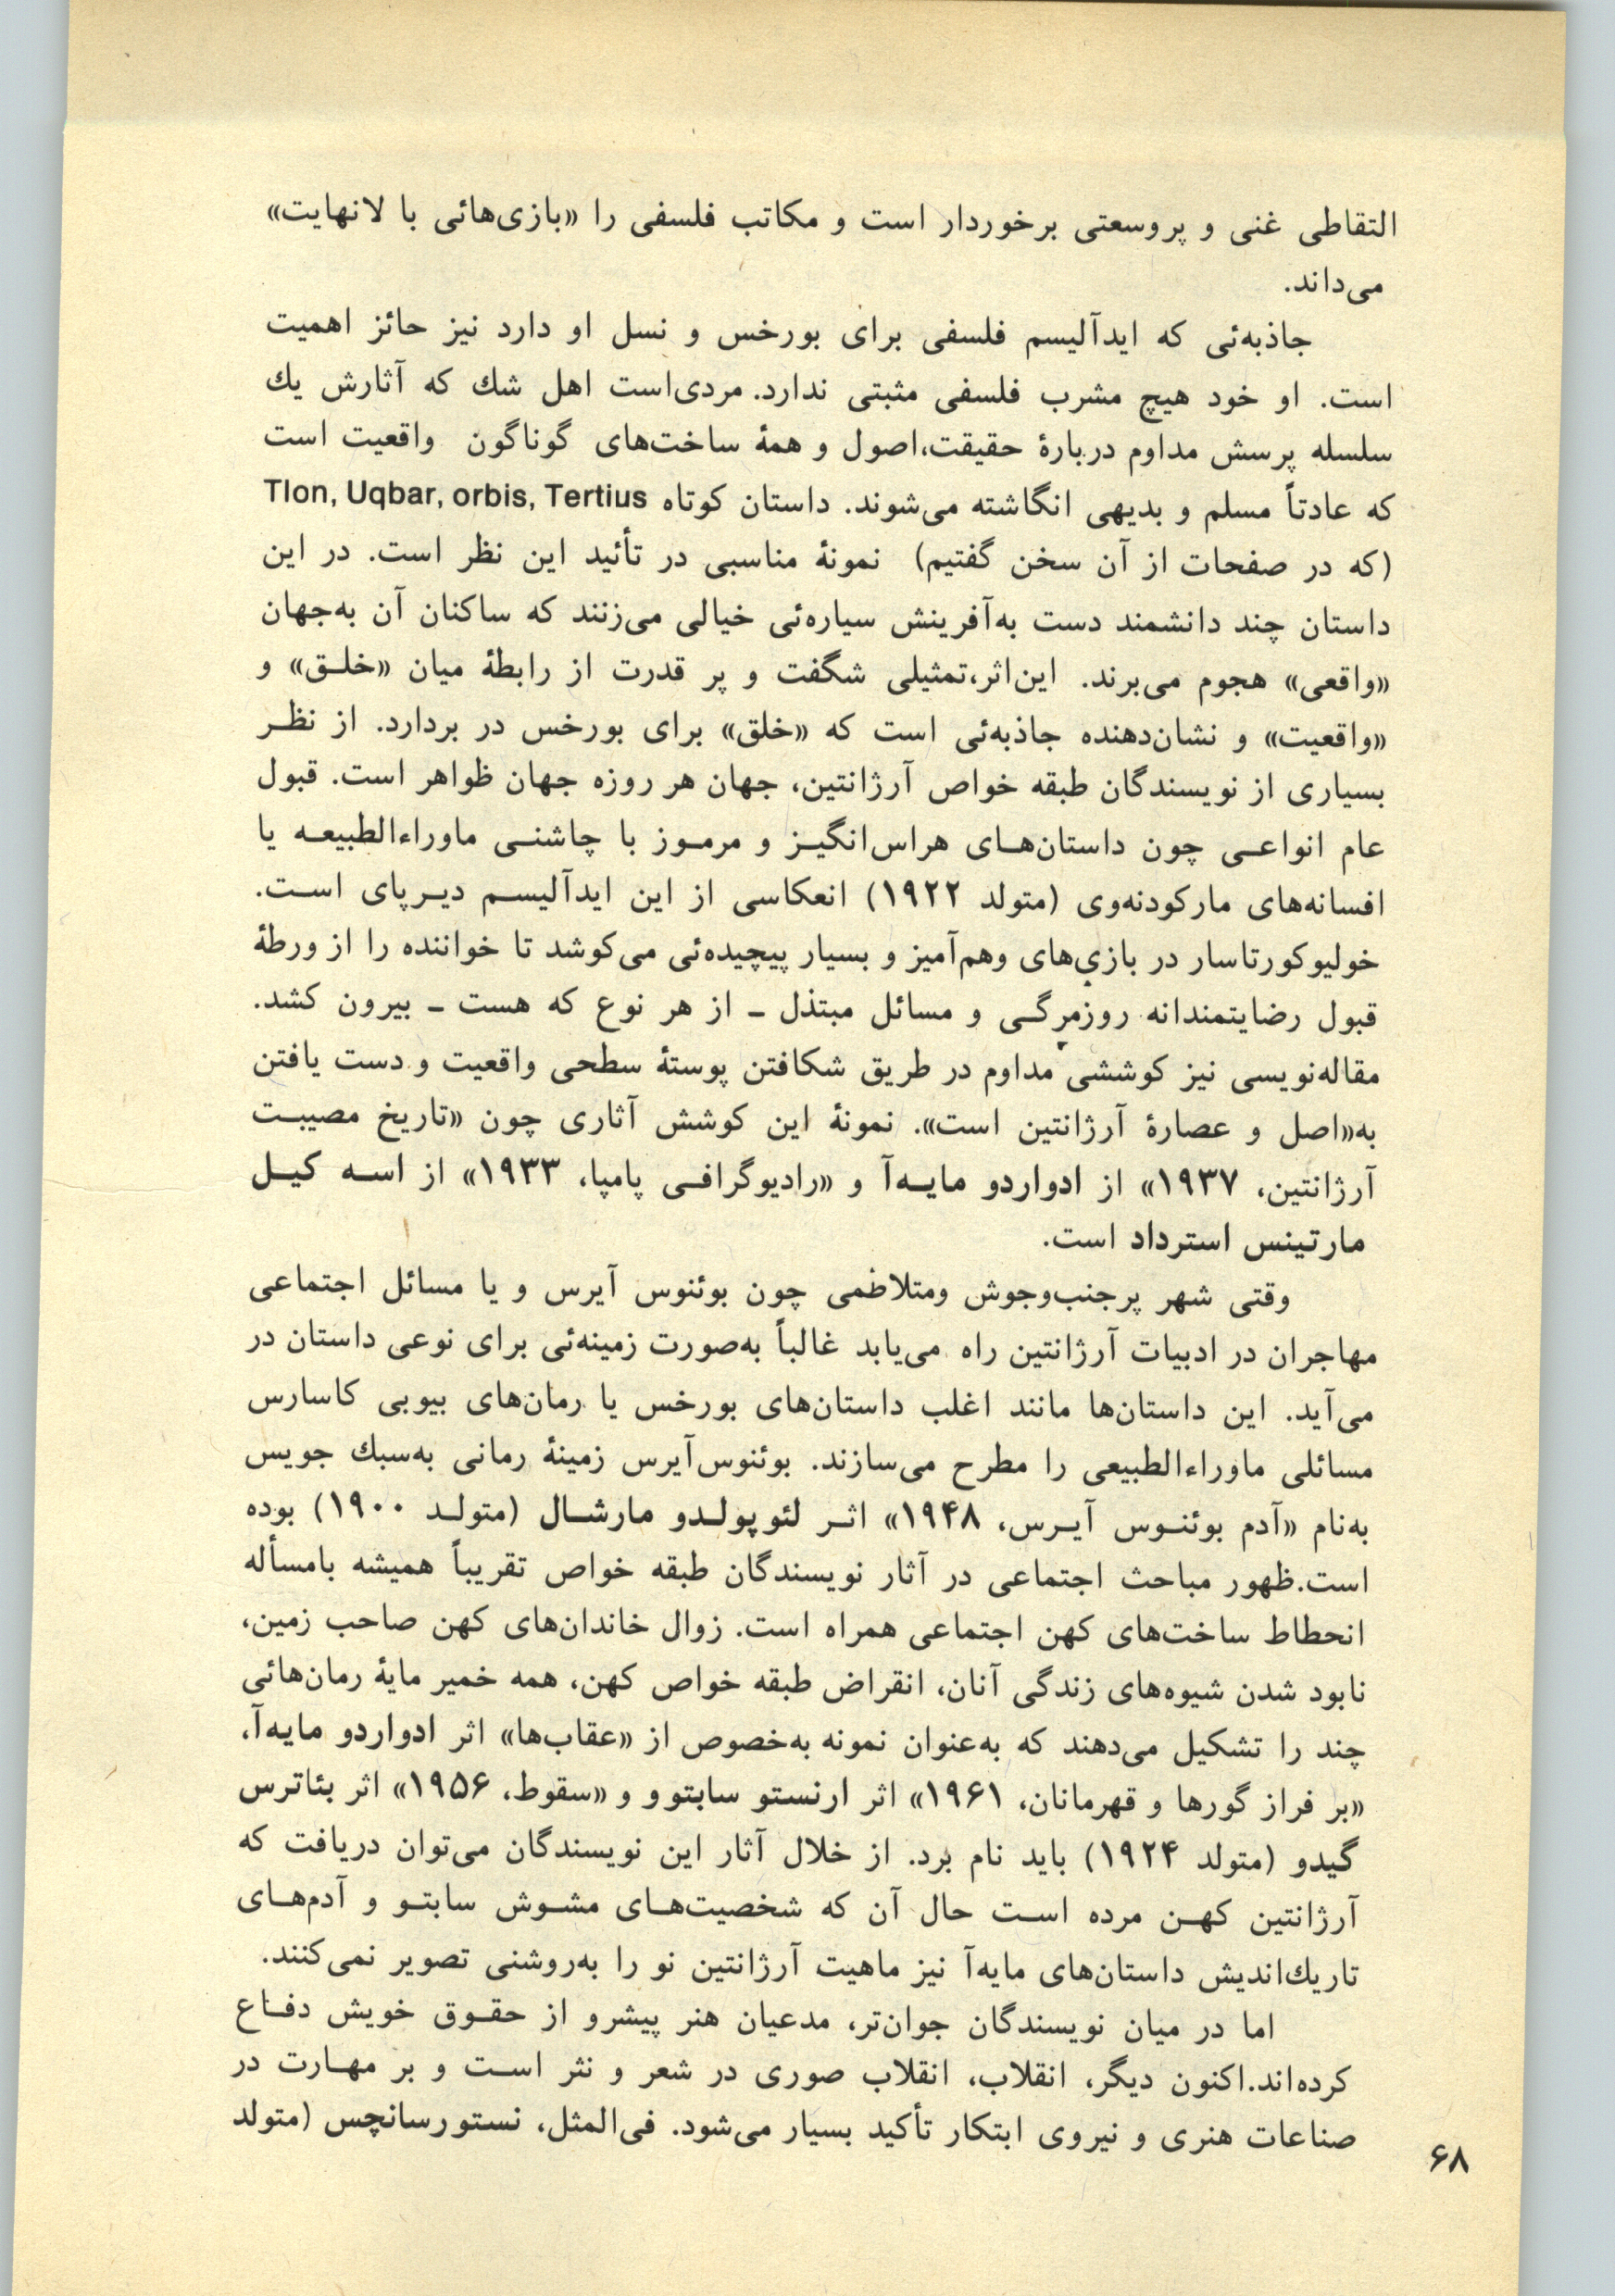 التقاطی غنی و پروسعتی برخوردار است و مکاتب فلسفی را «بازی‌هائی با لانهایت»
می‌داند.
جاذبه‌ئی که ایدآلیسم فلسفی برای بورخس و نسل او دارد نیز حائز اهمیت
است. او خود هیچ مشرب فلسفی مثبتی ندارد. مردی‌است اهل شك که آثارش یك
سلسله پرسش مداوم دربارهٔ حقیقت،اصول و همهٔ ساخت‌های گوناگون واقعیت است
که عادتاً مسلم و بدیهی انگاشته می‌شوند. داستان کوتاه Tlon, Uqbar, orbis, Tertius
(که در صفحات از آن سخن گفتیم) نمونهٔ مناسبی در تأئید این نظر است. در این
داستان چند دانشمند دست به‌آفرینش سیاره‌ئی خیالی می‌زنند که ساکنان آن به‌جهان
«واقعی» هجوم می‌برند. این‌اثر،تمثیلی شگفت و پر قدرت از رابطهٔ میان «خلـق» و
«واقعیت» و نشان‌دهنده جاذبه‌ئی است که «خلق» برای بورخس در بردارد. از نظـر
بسیاری از نویسندگان طبقه خواص آرژانتین، جهان هر روزه جهان ظواهر است. قبول
عام انواعـی چون داستان‌هـای هراس‌انگیـز و مرمـوز با چاشنـی ماوراءالطبیعـه یا
افسانه‌های مارکودنه‌وی (متولد ۱۹۲۲) انعکاسی از این ایدآلیسـم دیـرپای اسـت.
خولیوکورتاسار در بازی‌های وهم‌آمیز و بسیار پیچیده‌ئی می‌کوشد تا خواننده را از ورطهٔ
قبول رضایتمندانه روزمرگـی و مسائل مبتذل ـ از هر نوع که هست ـ بیرون کشد.
مقاله‌نویسی نیز کوششی مداوم در طریق شکافتن پوستهٔ سطحی واقعیت و دست یافتن
به«اصل و عصارهٔ آرژانتین است». نمونهٔ این کوشش آثاری چون «تاریخ مصیبـت
آرژانتین، ۱۹۳۷» از ادواردو مایـه‌آ و «رادیوگرافـی پامپا، ۱۹۳۳» از اسـه کیـل
مارتینس استرداد است.
وقتی شهر پرجنب‌وجوش ومتلاطمی چون بوئنوس آیرس و یا مسائل اجتماعی
مهاجران در ادبیات آرژانتین راه می‌یابد غالباً به‌صورت زمینه‌ئی برای نوعی داستان در
می‌آید. این داستان‌ها مانند اغلب داستان‌های بورخس یا رمان‌های بیویی کاسارس
مسائلی ماوراءالطبیعی را مطرح می‌سازند. بوئنوس‌آیرس زمینهٔ رمانی به‌سبك جویس
به‌نام «آدم بوئنـوس آیـرس، ۱۹۴۸» اثـر لئوپولـدو مارشـال (متولـد ۱۹۰۰) بوده
است.ظهور مباحث اجتماعی در آثار نویسندگان طبقه خواص تقریباً همیشه بامسأله
انحطاط ساخت‌های کهن اجتماعی همراه است. زوال خاندان‌های کهن صاحب زمین،
نابود شدن شیوه‌های زندگی آنان، انقراض طبقه خواص کهن، همه خمیر مایهٔ رمان‌هائی
چند را تشکیل می‌دهند که به‌عنوان نمونه به‌خصوص از «عقاب‌ها» اثر ادواردو مایه‌آ،
«بر فراز گورها و قهرمانان، ۱۹۶۱» اثر ارنستو سابتوو و «سقوط، ۱۹۵۶» اثر بئاترس
گیدو (متولد ۱۹۲۴) باید نام برد. از خلال آثار این نویسندگان می‌توان دریافت که
آرژانتین کهـن مرده اسـت حال آن که شخصیت‌هـای مشـوش سابتـو و آدم‌هـای
تاریك‌اندیش داستان‌های مایه‌آ نیز ماهیت آرژانتین نو را به‌روشنی تصویر نمی‌کنند.
اما در میان نویسندگان جوان‌تر، مدعیان هنر پیشرو از حقـوق خویش دفـاع
کرده‌اند.اکنون دیگر، انقلاب، انقلاب صوری در شعر و نثر اسـت و بر مهـارت در
صناعات هنری و نیروی ابتکار تأکید بسیار می‌شود. فی‌المثل، نستورسانچس (متولد
۶۸